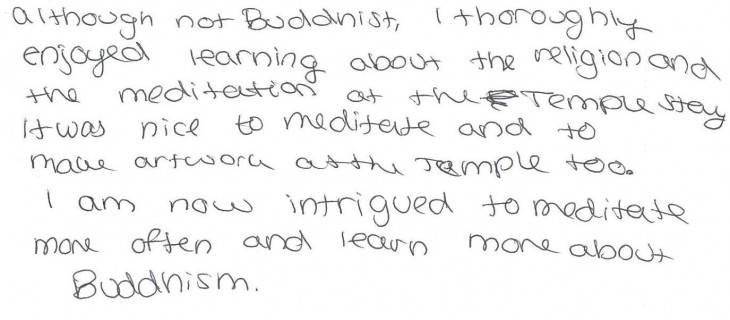 although not Buddhist, I thoroughly
enjoyed learning about the religion and
the meditation at the Temple stay
It was nice to meditate and to
make artwork at the Temple too.
I am now intrigued to meditate
more often and learn more about
Buddhism.